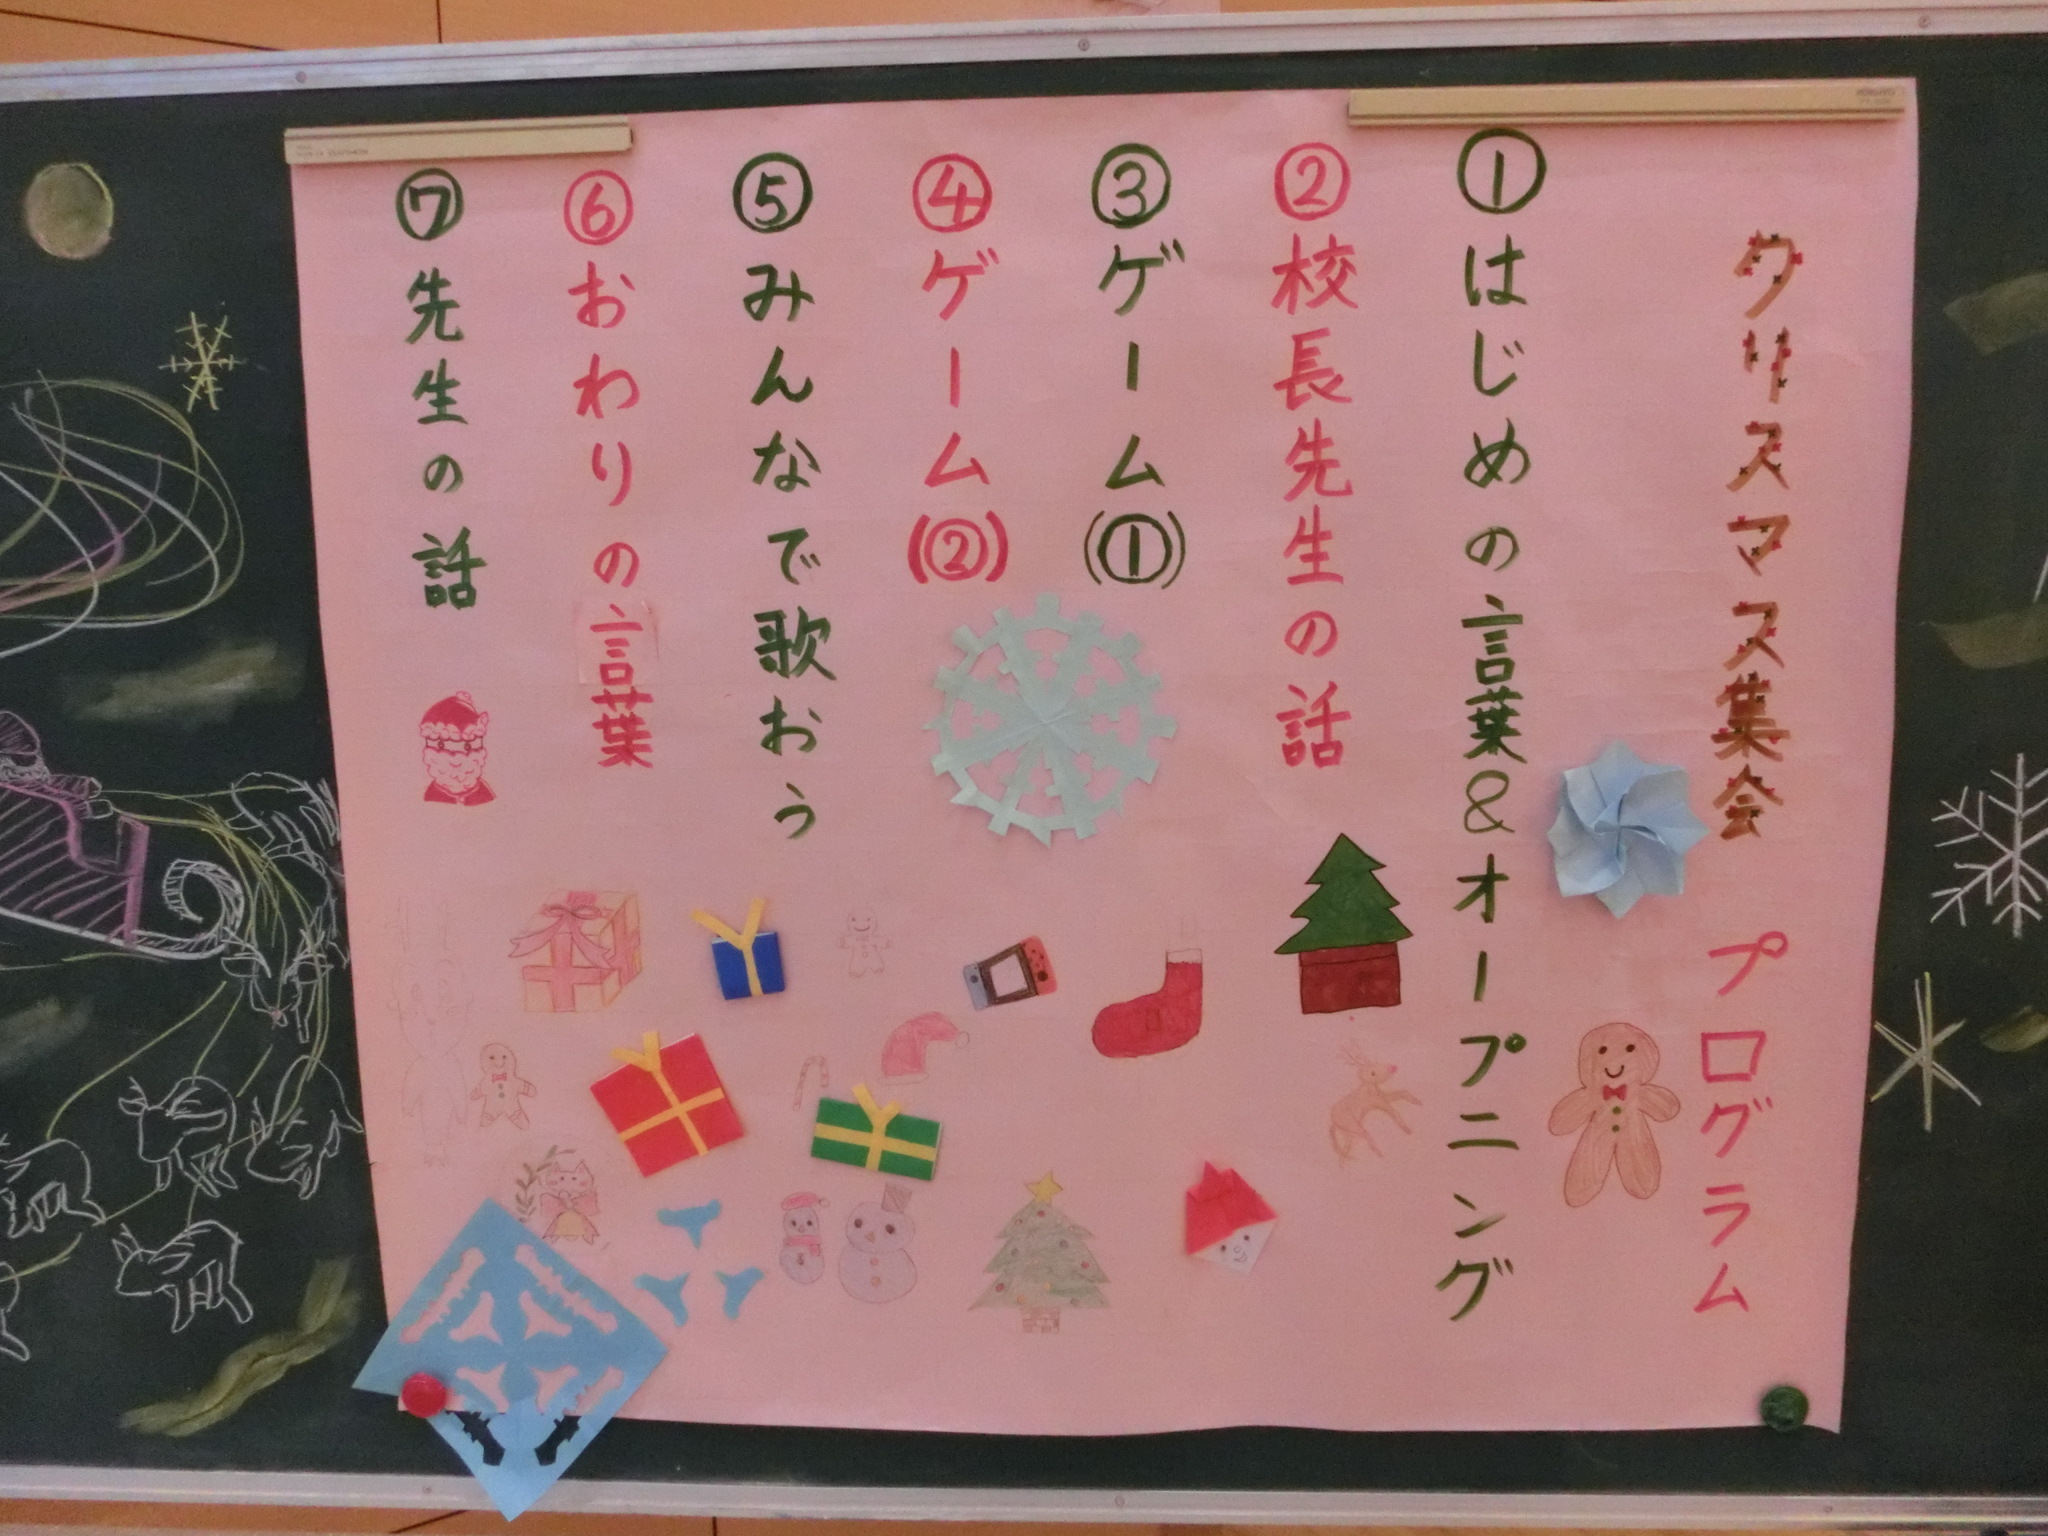 クリスマス集会 プログラム
①はじめの言葉&オープニング
②校長先生の話
③ゲーム(①)
④ゲーム(②)
⑤みんなで歌おう
⑥おわりの言葉
⑦先生の話